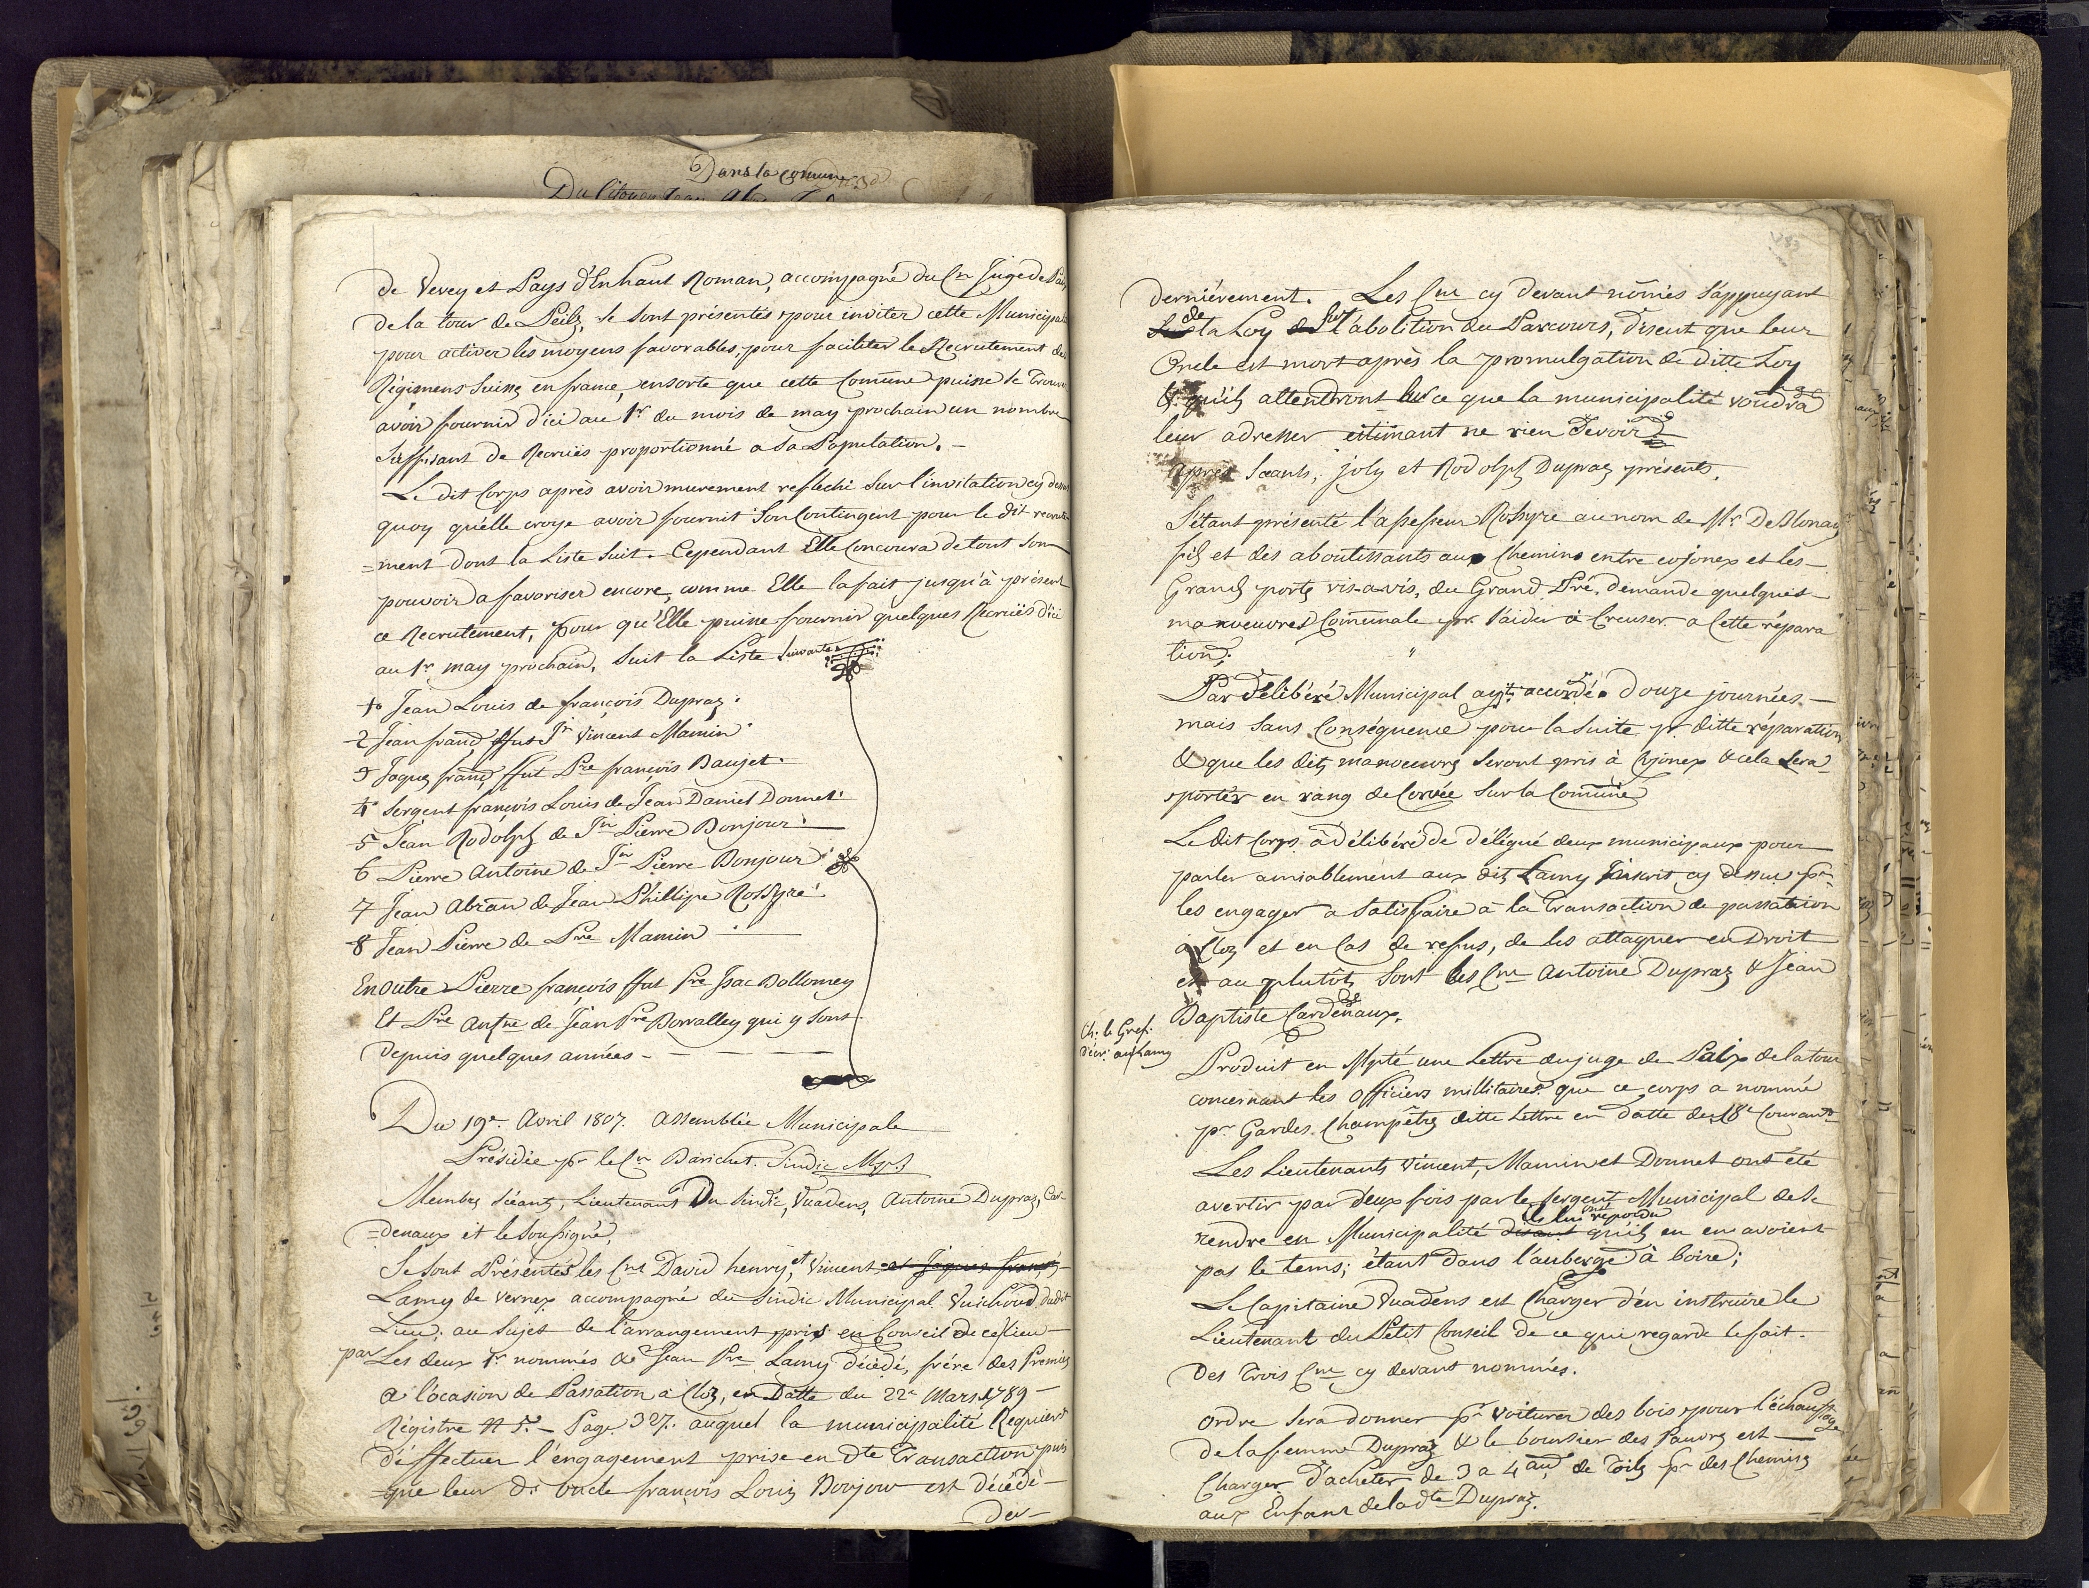 Dans la Comune
Du Citoyen Jean
de Vevey et Pays d'Enhaut Roman, accompagné du Cn Juge de Paix
de la tour de Peilz, se sont présentés pour inviter cette Municipa
pour activer les moyens favorables, pour faciliter le Recrutement des
Régimens Suisse en france, ensorte que cette Comune puisse se trouver
avoir fournir d'ici au 1r du mois de may prochain un nombre
Suffisant de Recrües proportionné a sa Population. –
Le dit Corps après avoir murement reflechi Sur l'invitation cy dessus
quoy qu'elle croye avoir fournit Son Contingent pour le dit recrute
=ment dont la Liste Suit. Cependant Elle Concoura de tout Son
pouvoir a favoriser encore, comme Elle la fait jusqu'à présent
ce Recrutement, pour qu'Elle puisse fournir quelques Recrües d'ici
au 1r may prochain, Suit la Liste Suivante
1o Jean Louis de françois Dupraz.
2 Jean franç ffut Jn Vincent Mamin
3 Jaques franç ffut Pre françois Baujet.
4o Sergent françois Louis de Jean Daniel Donnet.
5 Jean Rodolph de Jn Pierre Bonjour
6 Pierre Antoine de Jn Pierre Bonjour
7 Jean Abram de Jean Phillipe Rossyre
8 Jean Pierre de Pre Mamin
En outre Pierre françois ffut Pre Isac Dollomey
Et Pre Antne de Jean Pre Borralley qui y sont
depuis quelques années –
Du 19e. Avril 1807. Assemblée Municipale
Présidée pr le Cn Barichet. Sindic Mpl
Membrs Séants, Lieutenant Du Sindic, Vuadens, Antoine Dupraz, Car-
=denaux et le Soussigné,
Se sont Présentés les Cns David henry, et Vincent et Jaques franç
Lamy de Vernex accompagné du Sindic Municipal Vuichoud, dudit
Lieu; au Sujet de l'arrangement pris en Conseil de ce lieu
par Les deux 1r nommés & Jean Pre Lamy décédé, frére des Premiers
a l'ocasion de Passation à Cloz, en Datte du 22e Mars 1789 –
Régistre N 5. – Page 327. auquel la municipalité Requiert
d'éffectuer l'engagement prise en Dte Transaction puis
=que leur Dt oncle françois Louis Bonjour est décédé
der-
dernièrement. Les Cns cy devant només S'appuyant
de la Loy sur l'abolition du Parcours, disent que leur
Oncle est mort après la promulgation de ditte Loy
& qu'ils attendront sur ce que la municipalité voudra
leur adresser estimant ne rien devoir
après Séants, joly et Rodolph Dupraz présents.
S'étant présenté l'assesseur Rossyre au nom de Mr. DeBlonay
fils et des aboutissants aux Chemins entre cojonex et les
Grands ports vis-a-vis, du Grand Pré, demande quelques
manoeuvres Comunale pr l'aider à Creuser a Cette répara
tion;
Par délibéré Municipal ayt accordé douze journées –
mais Sans Conséquence pour la Suite pr ditte réparation
& que les dits manoeuvres seront pris à Cojonex & cela Sera
portér en rang de Corvée Sur la Comune
Le dit Corps a délibéré de délégué deux municipaux pour
parler amiablement aux dits Lamy Inscrit cy dessus pr
les engager a Satisfaire à la transaction de passation
à Cloz et en Cas de refus, de les attaquer en Droit
et au plutôt, Sont les Cns Antoine Dupraz & Jean
Baptiste Cardenaux.
Ch: le Greff.
d'écr: aux Lamy
Produit en Mpté une Lettre du juge de Paix de la tour
concernant les Officiers millitaires que ce corps a nommé
pr Gardes Champêtrs ditte Lettre en datte du 18e Courant
Les Lieutenants Vincent, Mamin et Donnet ont été
avertir par deux fois par le Sergent Municipal de se
ils lui ont répondu
rendre en Municipalité disant qu'ils en en avoient
pas le tems; étant dans l'auberge à boire;
Le Capitaine Vuadens est Charger d'en instruire le
Lieutenant du Petit Conseil de ce qui regarde le fait.
Des Trois Cns cy devant nommés.
Ordre Sera donner pr voiturer des bois pour l'échauffage
de la femme Dupraz & le boursier des Pauvrs est
Charger d'acheter de 3 a 4 aun de Toile pr des Chemiss
aux Enfans de la dte Dupraz.